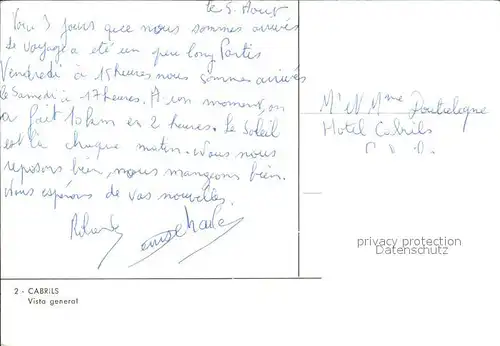 le 5. Août
Voici 3 jours que nous sommes arrivés
Le voyage a été un peu long Partis
Vendredi à 15 heures nous sommes arrivés
le Samedi à 17 heures. A un moment, on
a fait 10 km en 2 heures. Le Soleil
est là chaque matin. Nous nous
reposons bien, nous mangeons bien.
Nous espérons de vos nouvelles.
Mr et Mme
Hotel Cabrils
privacy protection
DatenSchutz
2 - CABRILS
Vista general